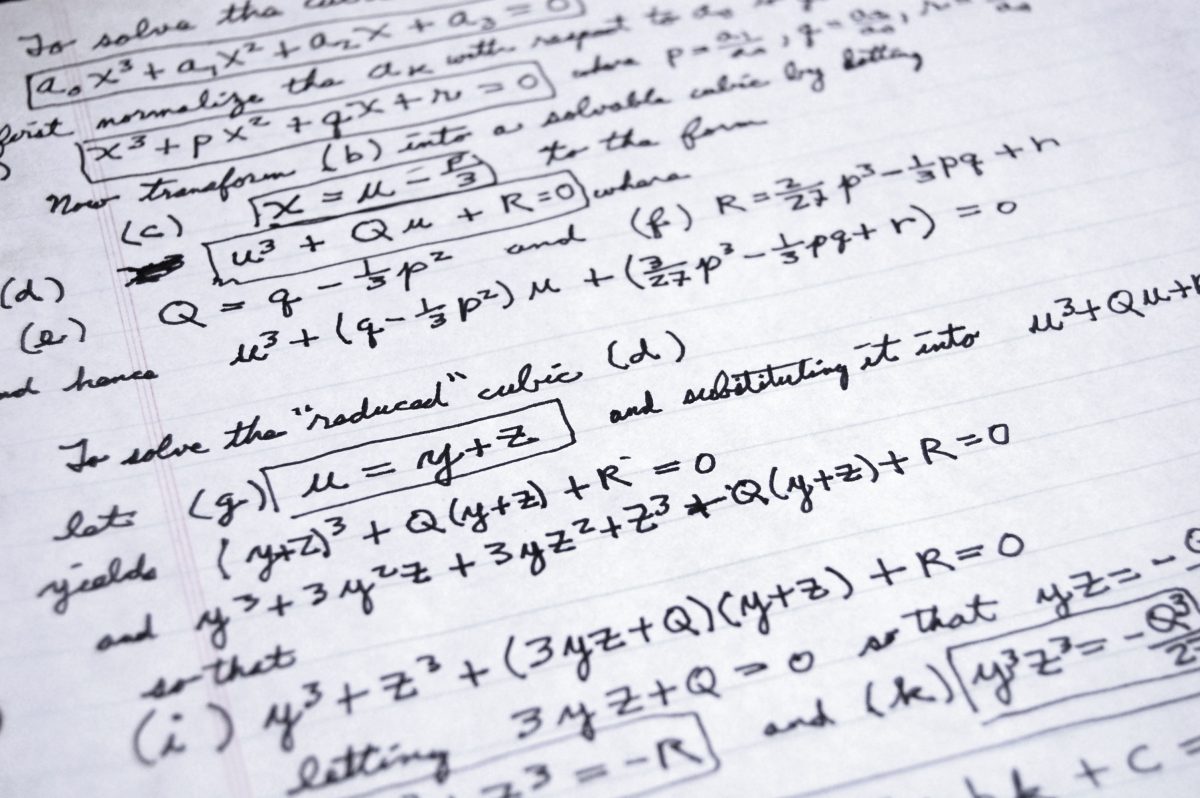 To solve the
a₀x³ + a₁x² + a₂x + a₃ = 0
first normalize the aₖ with respect to a₀
x³ + px² + qx + r = 0 where p = a₁/a₀, q = a₂/a₀, r =
Now transform (b) into a solvable cubic by letting
(c) x = u - p/3 to the form
(d) u³ + Qu + R = 0 where
(e) Q = q - 1/3 p² and (f) R = 2/27 p³ - 1/3 pq + r
and hence u³ + (q - 1/3 p²) u + (2/27 p³ - 1/3 pq + r) = 0
To solve the "reduced" cubic (d)
let (g) u = y + z and substituting it into u³ + Qu +
yields (y+z)³ + Q(y+z) + R = 0
and y³ + 3y²z + 3yz² + z³ + Q(y+z) + R = 0
so that
(i) y³ + z³ + (3yz + Q)(y+z) + R = 0
letting 3yz + Q = 0 so that yz = -
z³ = -R and (k) y³z³ = -Q³/2
k + c =